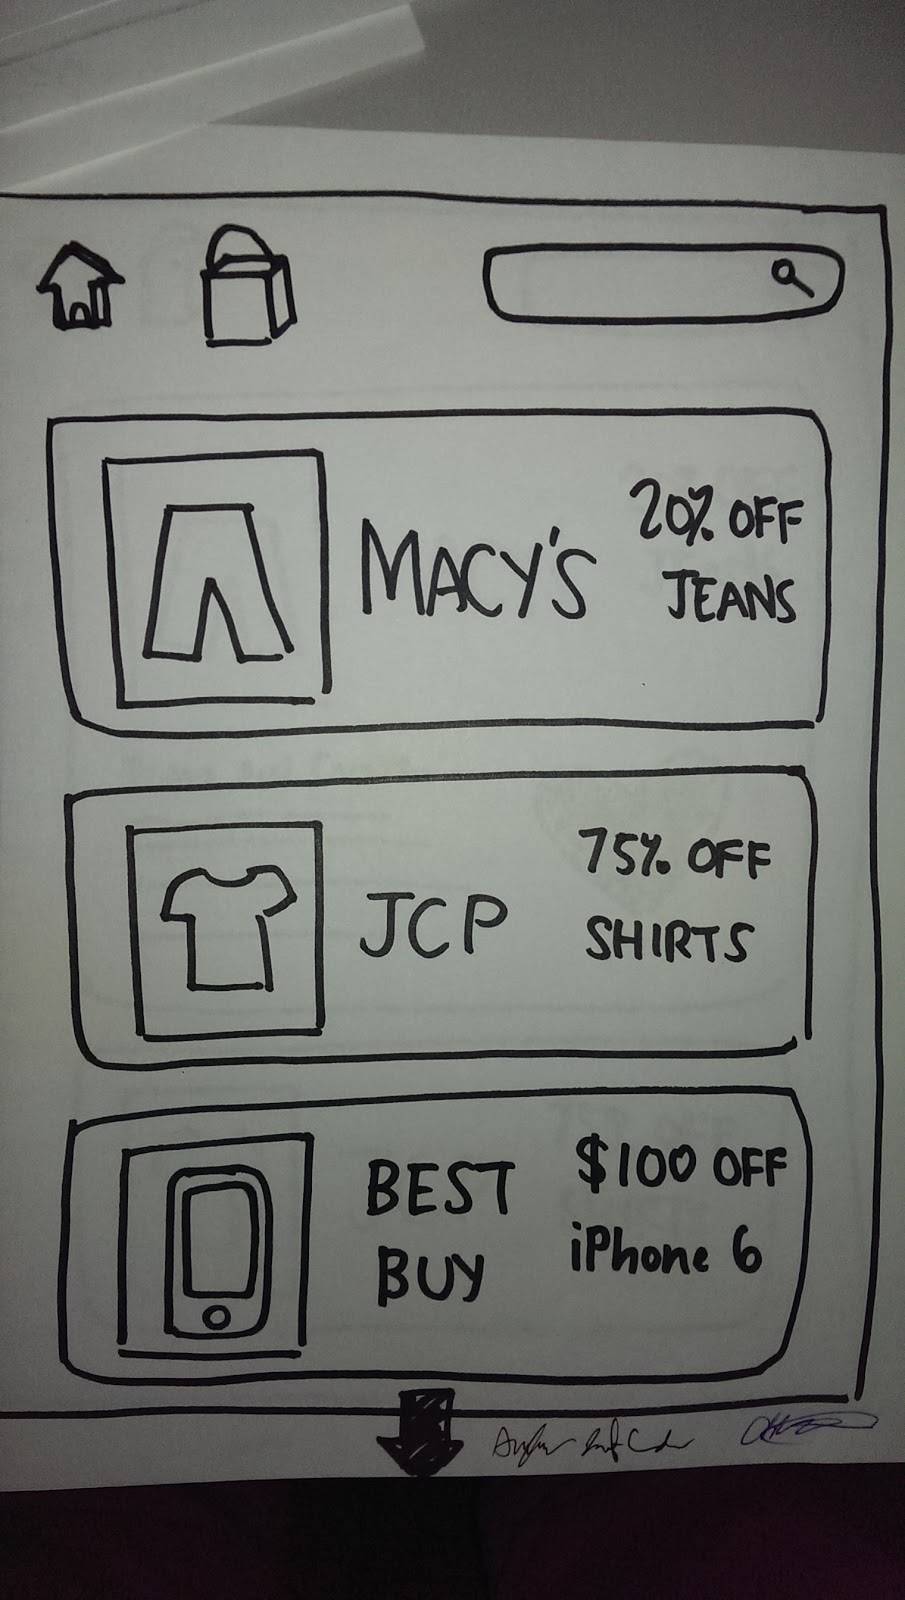 MACY'S
20% OFF
JEANS
JCP
75% OFF
SHIRTS
BEST
BUY
$100 OFF
iPhone 6